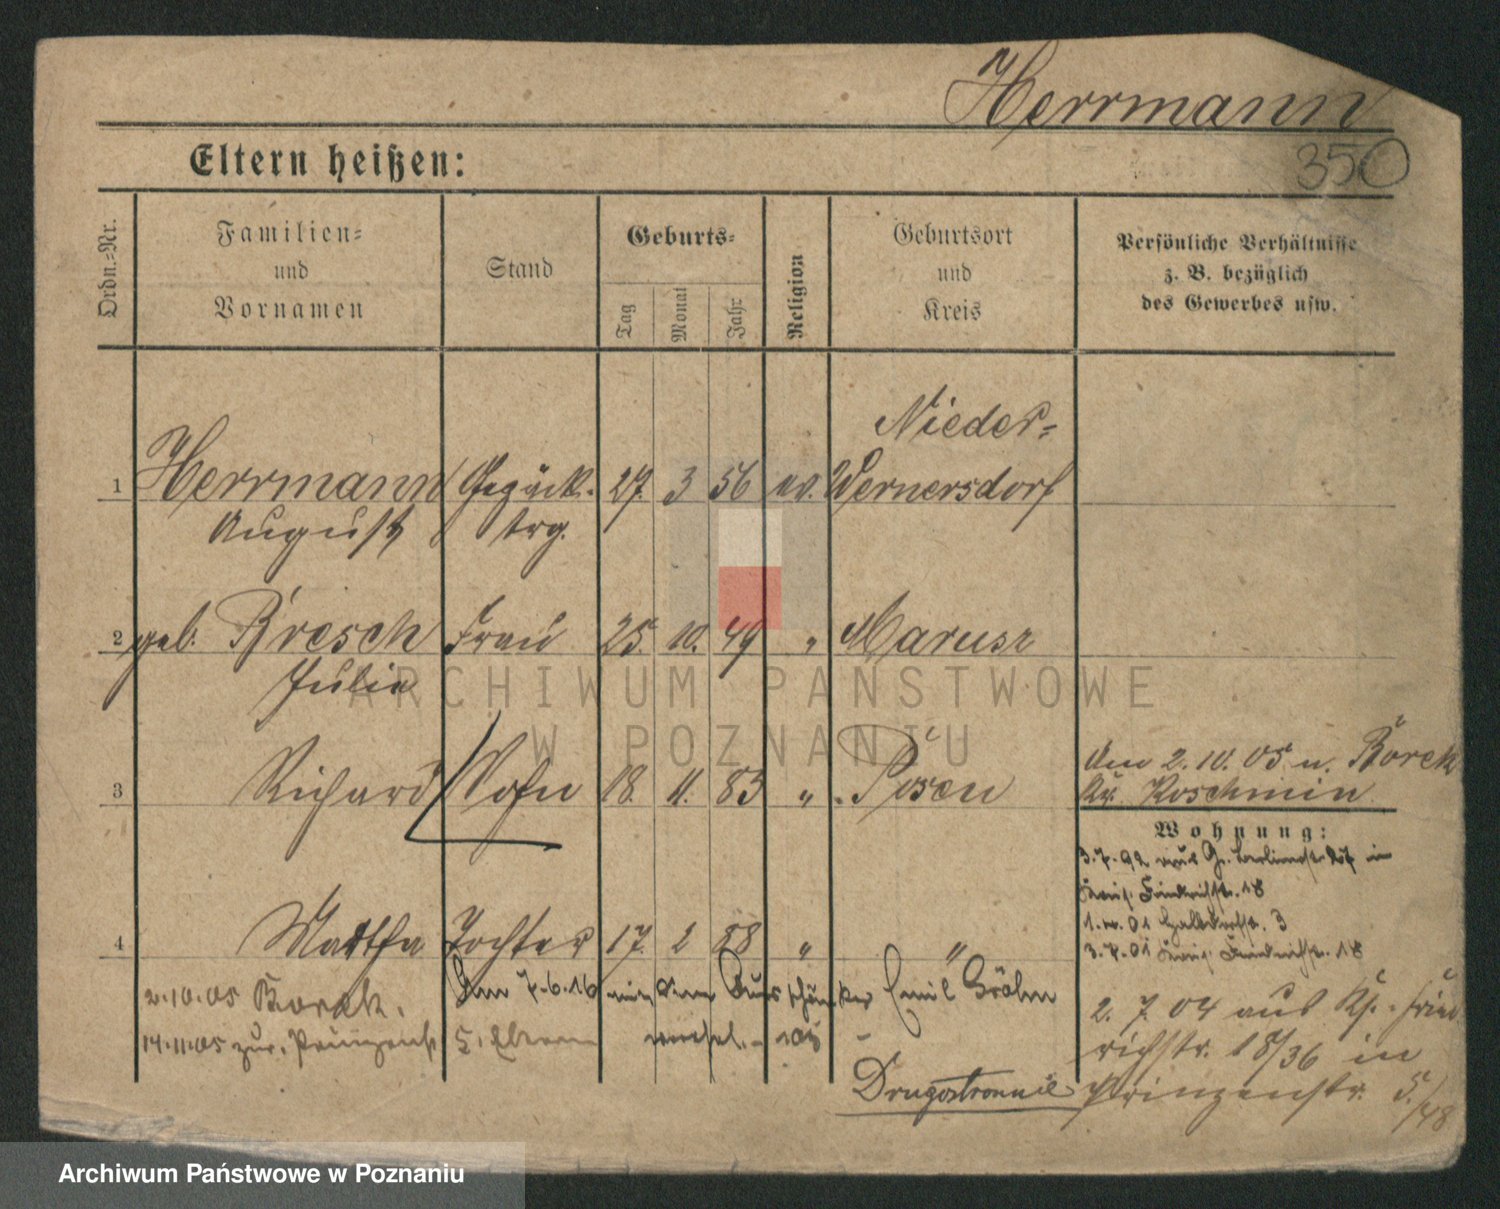 Herrmann
350
Eltern heißen:
Ordn.-Nr.
Familien-
und
Vornamen
Stand
Geburts-
Tag
Monat
Jahr
Religion
Geburtsort
und
Kreis
Persönliche Verhältnisse
z. B. bezüglich
des Gewerbes usw.
Nieder-
1 Herrmann Gepäck- 27. 3 56 ev. Wernersdorf
August trg.
2 geb. Bresch Frau 25. 10. 49 " Marusz
Julia
3 Richard Sohn 18. 11. 83 " Posen
am 2.10.05 n. Borek
Kr. Koschmin
Wohnung:
3.7.92 Gr. Berlinerstr. 27 in
Friedrichstr. 18
4 Martha Tochter 17. 2 88 " "
3
3.7.01 Friedrichstr. 18
2.10.05 Borek.
Am 7.6.16 mit dem Emil Böhm
14.11.05 zur. Prinzenstr.
5. Eltern
2. 7. 04 aus Kp. Fried
richstr. 18/36 in
Prinzenstr. 5./48
ARCHIWUM PAŃSTWOWE
W POZNANIU
Archiwum Państwowe w Poznaniu